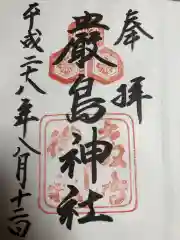 奉拝
嚴島神社
平成二八年八月十二日